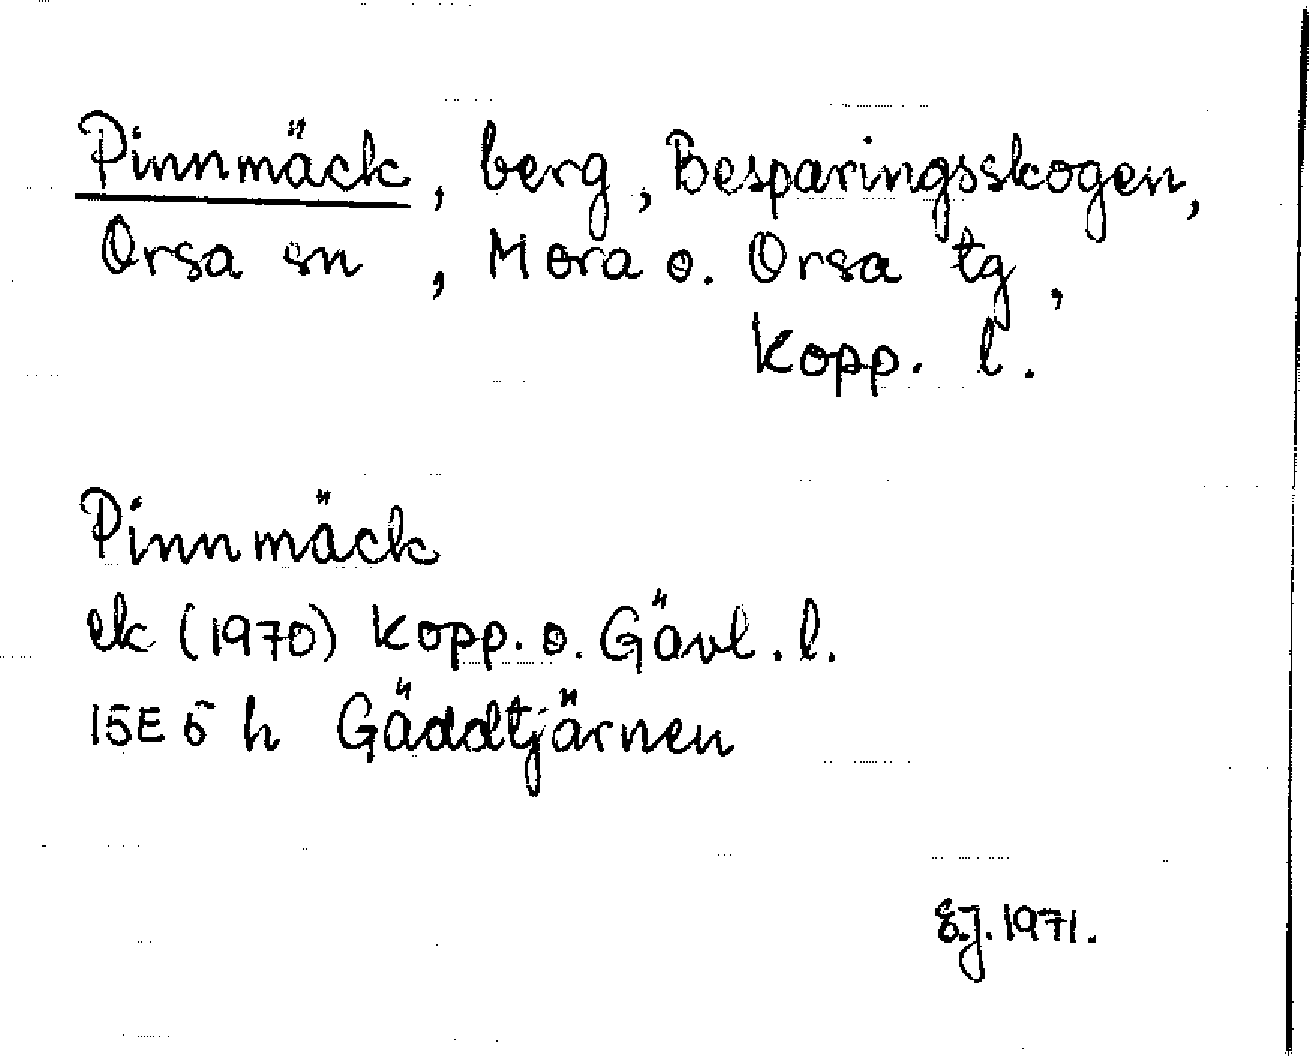 Pinnmäck, berg, Besparingsskogen,
Orsa sn, Mora o. Orsa tg,
Kopp. l.
Pinnmäck
ek (1970) Kopp. o. Gävl. l.
15E 5 h Gäddtjärnen
E.J. 1971.